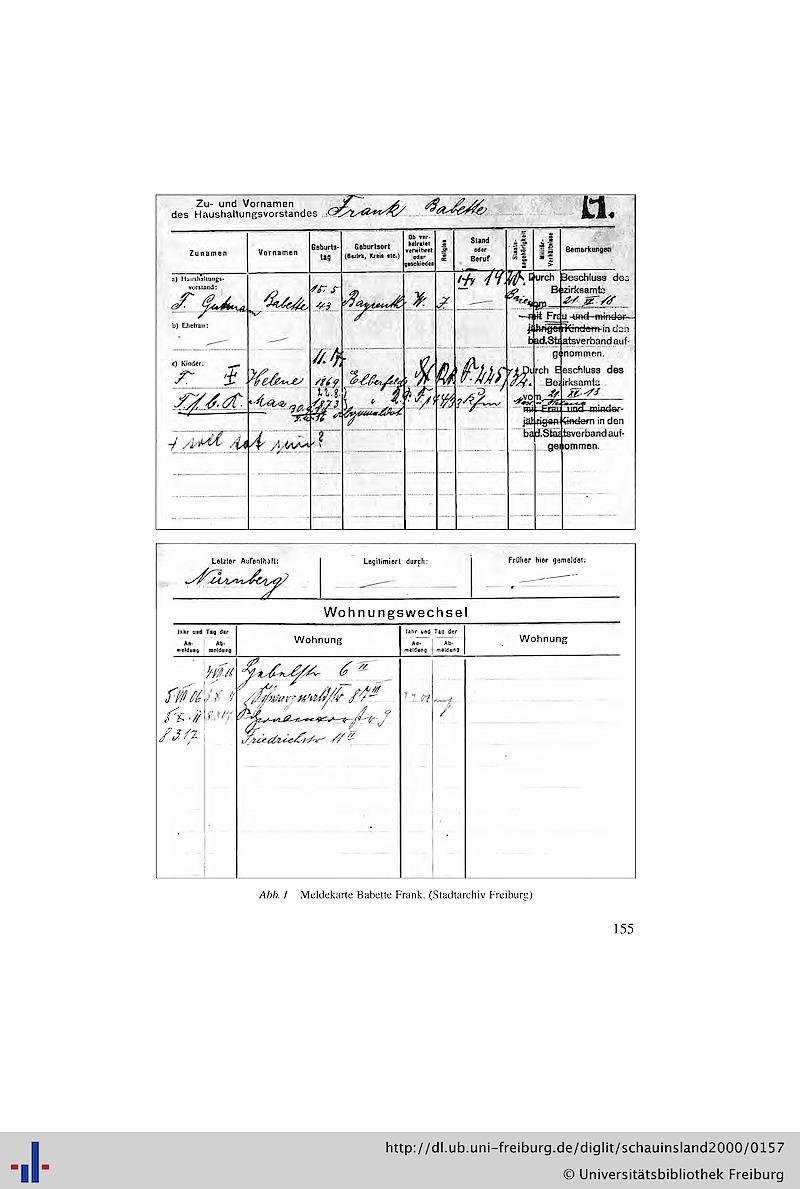 Zu- und Vornamen
des Haushaltungsvorstandes Frank Babette
H.
Zunamen
Vornamen
Geburts-
tag
Geburtsort
(Bezirk, Kreis etc.)
Ob ver-
heiratet
verwitwet
oder
geschieden
Religion
Stand
oder
Beruf
Staats-
angehörigkeit
Militär-
Verhältnisse
Bemerkungen
a) Haushaltungs-
vorstand:
F. Gutmann Babette 15. 5 43 Bayreuth W. J. —
Durch Beschluss des
Bezirksamts
vom 21. XII 18
mit Frau und minder-
jährigen Kindern in den
bad. Staatsverband auf-
genommen.
b) Ehefrau:
— —
c) Kinder:
F. Helene 1869 Elberfeld
Max 1873
Durch Beschluss des
Bezirksamts
vom 21. XII 18
mit Frau und minder-
jährigen Kindern in den
bad. Staatsverband auf-
genommen.
Letzter Aufenthalt:
Nürnberg
Legitimiert durch:
—
Früher hier gemeldet:
—
Wohnungswechsel
Jahr und Tag der
An-
meldung
Ab-
meldung
Wohnung
Jahr und Tag der
An-
meldung
Ab-
meldung
Wohnung
Hebelstr 6 II
5 VII 06 Schwarzwaldstr 87 III
5 X. 11
8 3 17 Friedrichstr 11 II
Abb. 1 Meldekarte Babette Frank. (Stadtarchiv Freiburg)
155
http://dl.ub.uni-freiburg.de/diglit/schauinsland2000/0157
© Universitätsbibliothek Freiburg